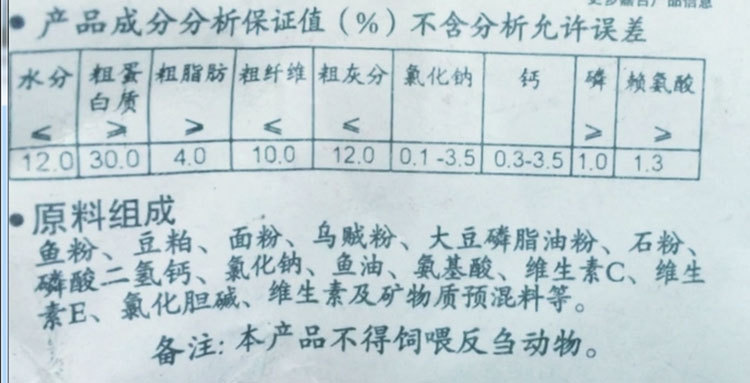 更多嘉吉产品信息
• 产品成分分析保证值（%）不含分析允许误差
水分 粗蛋白质 粗脂肪 粗纤维 粗灰分 氯化钠 钙 磷 赖氨酸
≤ ≥ ≥ ≤ ≤ ≥ ≥
12.0 30.0 4.0 10.0 12.0 0.1-3.5 0.3-3.5 1.0 1.3
• 原料组成
鱼粉、豆粕、面粉、乌贼粉、大豆磷脂油粉、石粉、
磷酸二氢钙、氯化钠、鱼油、氨基酸、维生素C、维生
素E、氯化胆碱、维生素及矿物质预混料等。
备注: 本产品不得饲喂反刍动物。